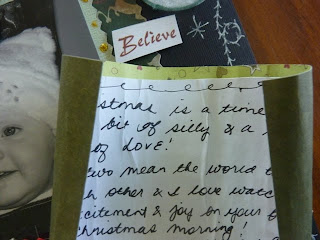 Believe
stmas is a time
bit of silly & a
of LOVE!
two mean the world t
h other & I love watc
citement & joy on your f
christmas morning!